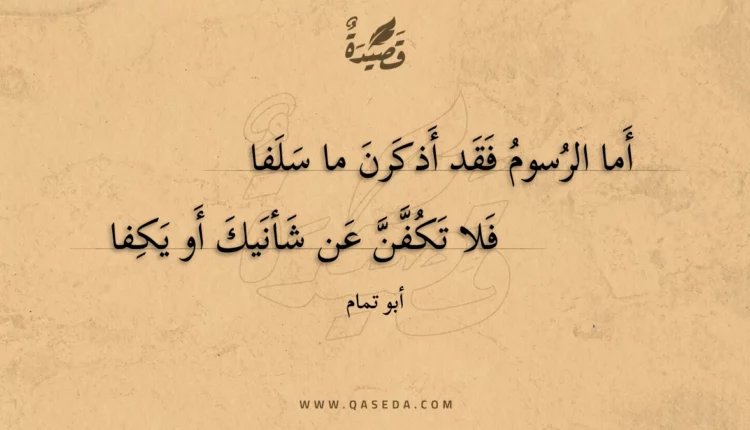 قَصِيْدَةٌ
أَما الرُسومُ فَقَد أَذكَرنَ ما سَلَفا
فَلا تَكُفَّنَّ عَن شَأنَيكَ أَو يَكِفا
أبو تمام
WWW.QASEDA.COM